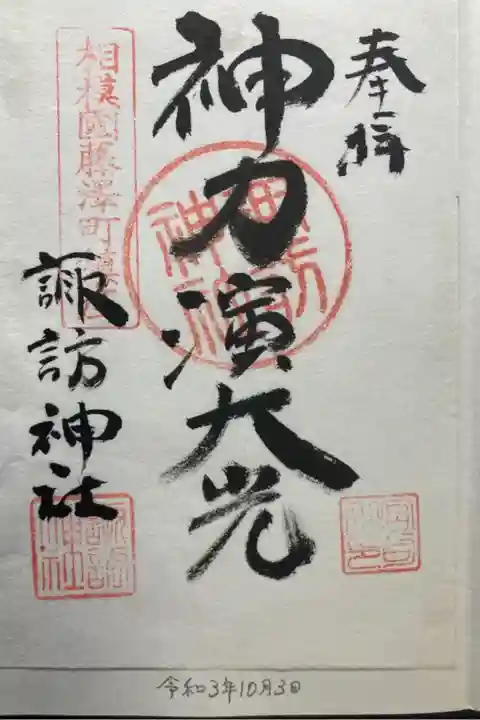 奉拝
神力演大光
相模國藤澤町鎮
諏訪神社
諏訪神社
諏訪神社
令和3年10月3日